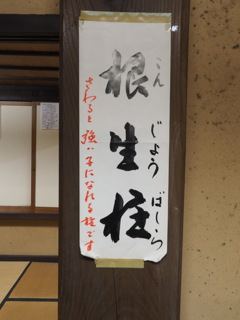 根生柱
こんじょうばしら
さわると強い子になれる柱です